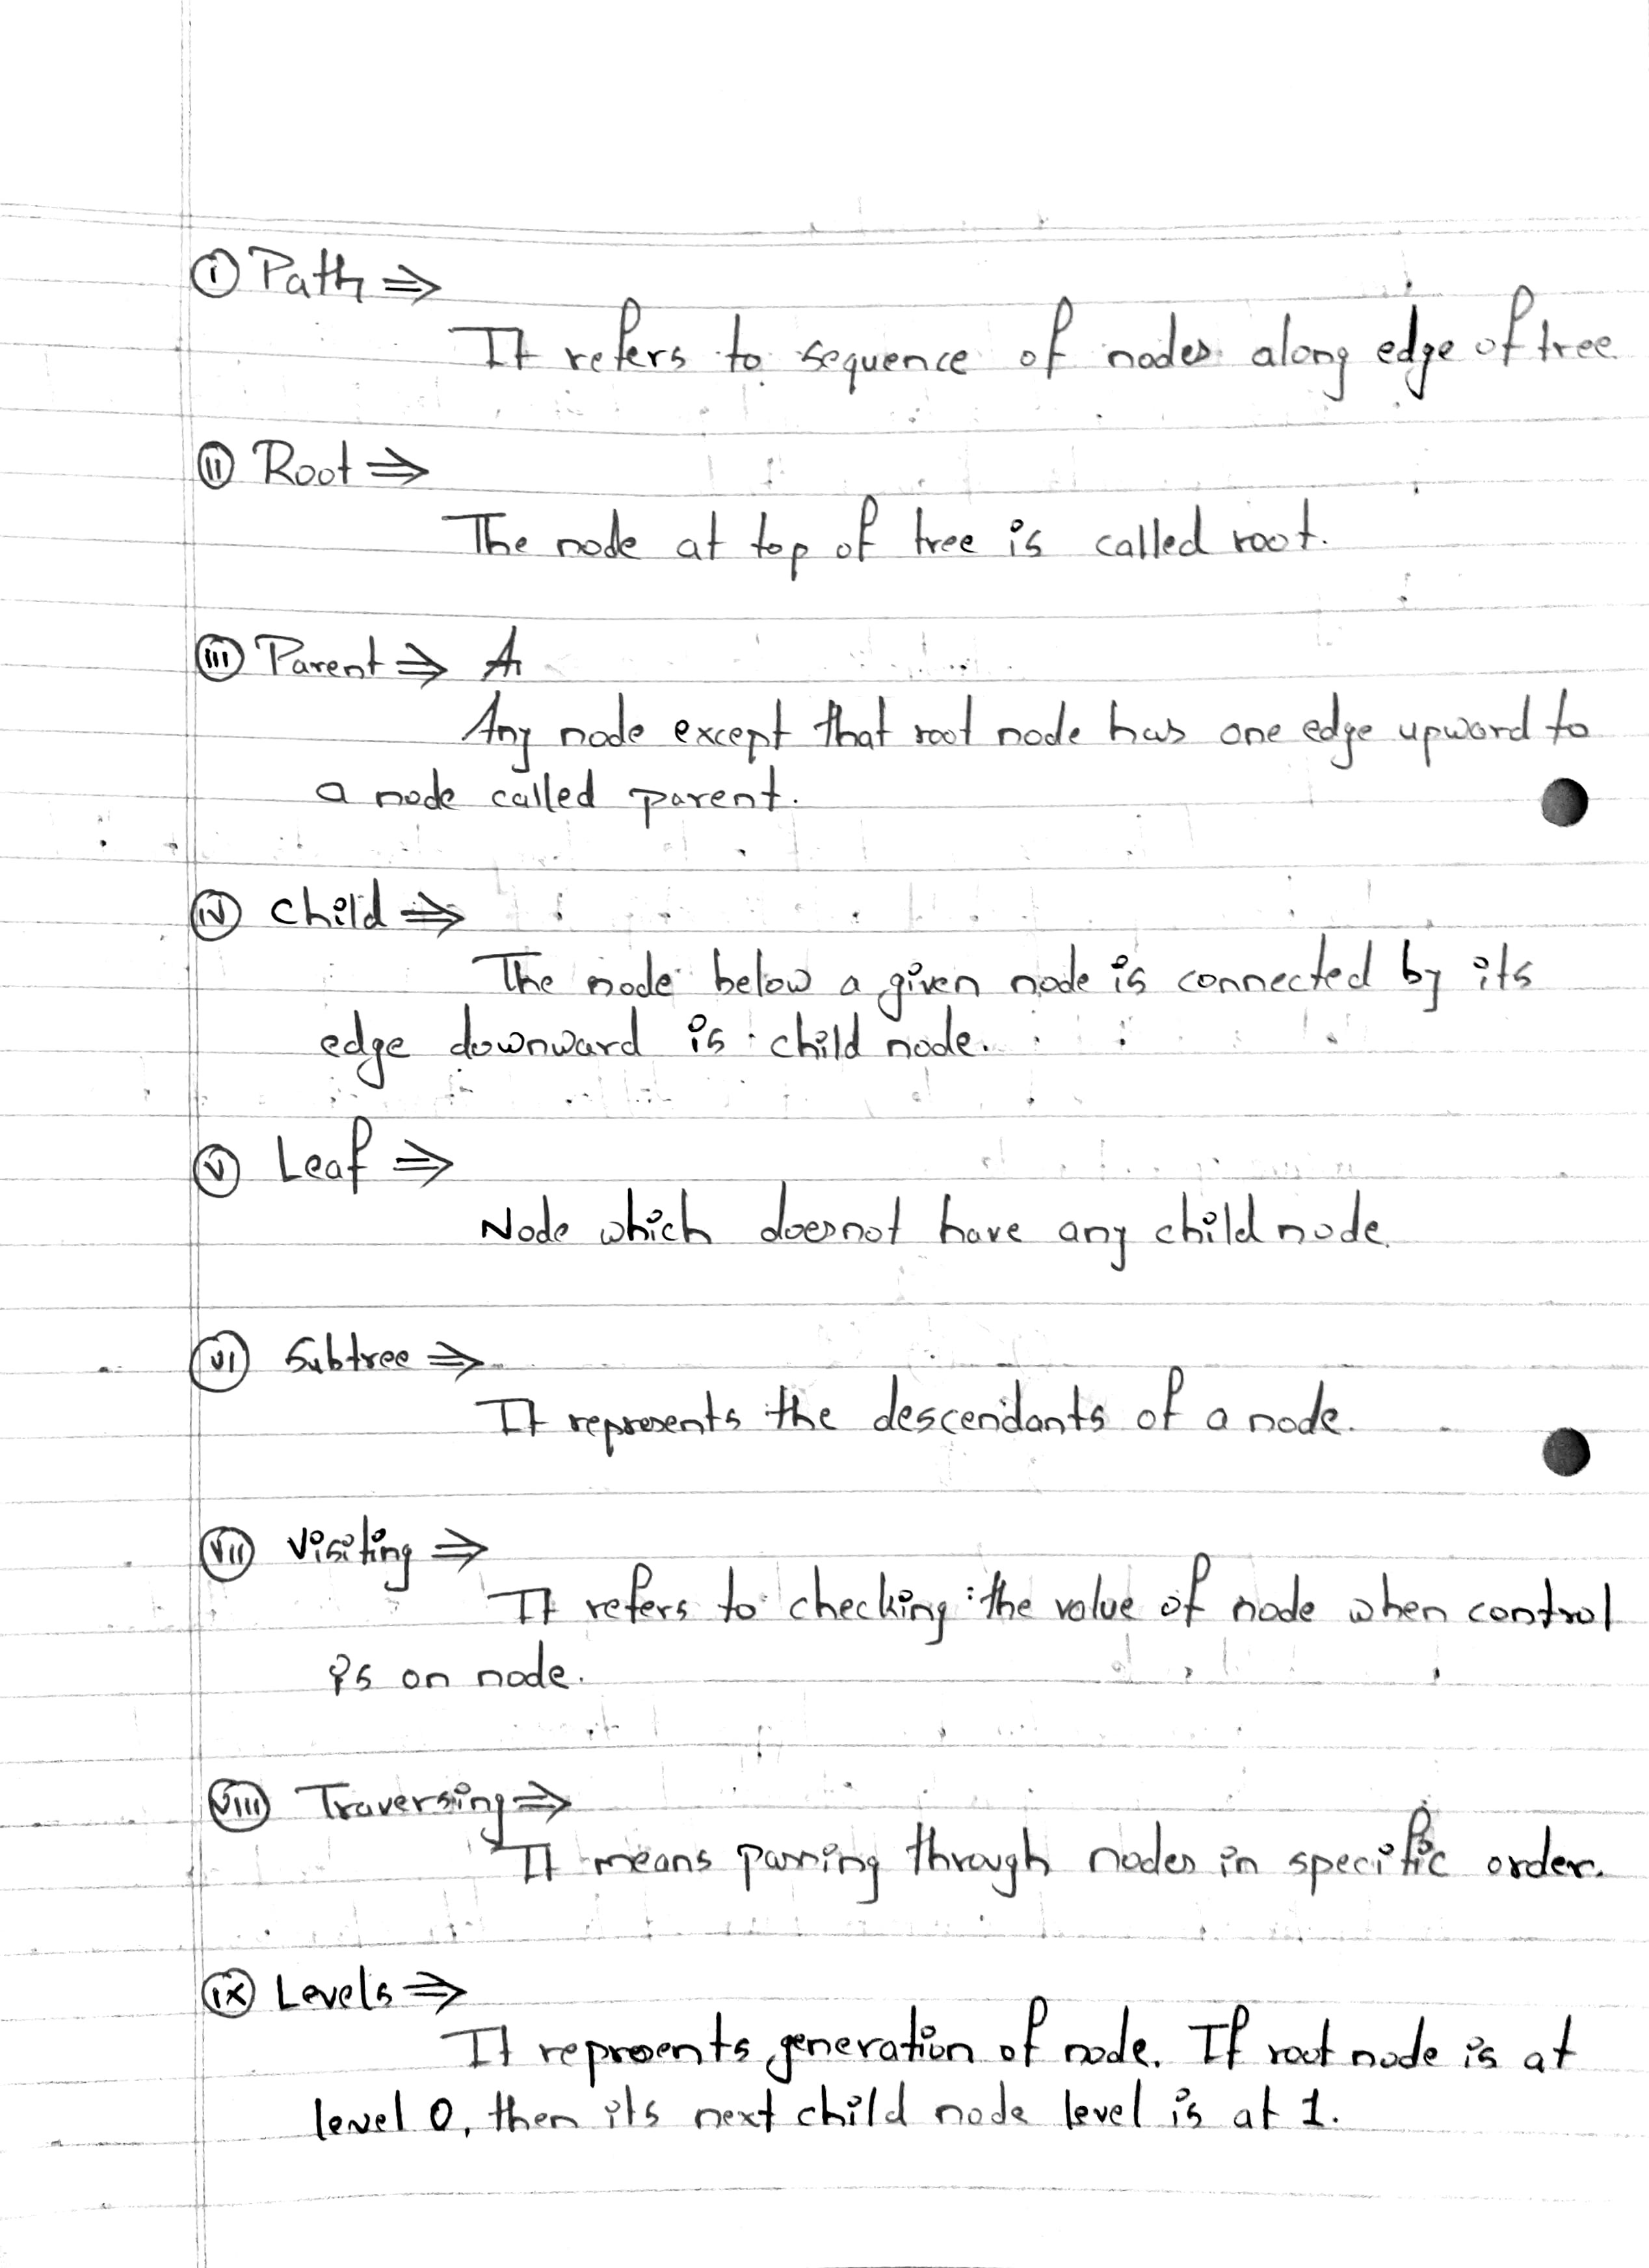 (i) Path ⇒
It refers to sequence of nodes along edge of tree
(ii) Root ⇒
The node at top of tree is called root.
(iii) Parent ⇒
Any node except that root node has one edge upward to
a node called parent.
(iv) child ⇒
The node below a given node is connected by its
edge downward is child node.
(v) Leaf ⇒
Node which doesnot have any child node.
(vi) Subtree ⇒
It represents the descendants of a node.
(vii) Visiting ⇒
It refers to checking the value of node when control
is on node.
(viii) Traversing ⇒
It means passing through nodes in specific order.
(ix) Levels ⇒
It represents generation of node. If root node is at
level 0, then its next child node level is at 1.